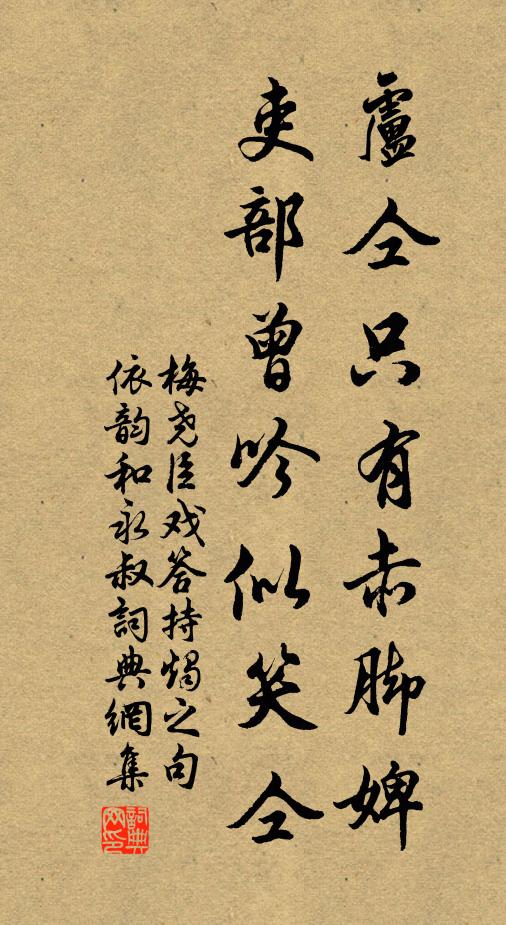 盧仝只有赤脚婢
吏部曾吟似笑仝
梅尧臣戏答持燭之句
依韵和永叔詞典網集
詞典网印